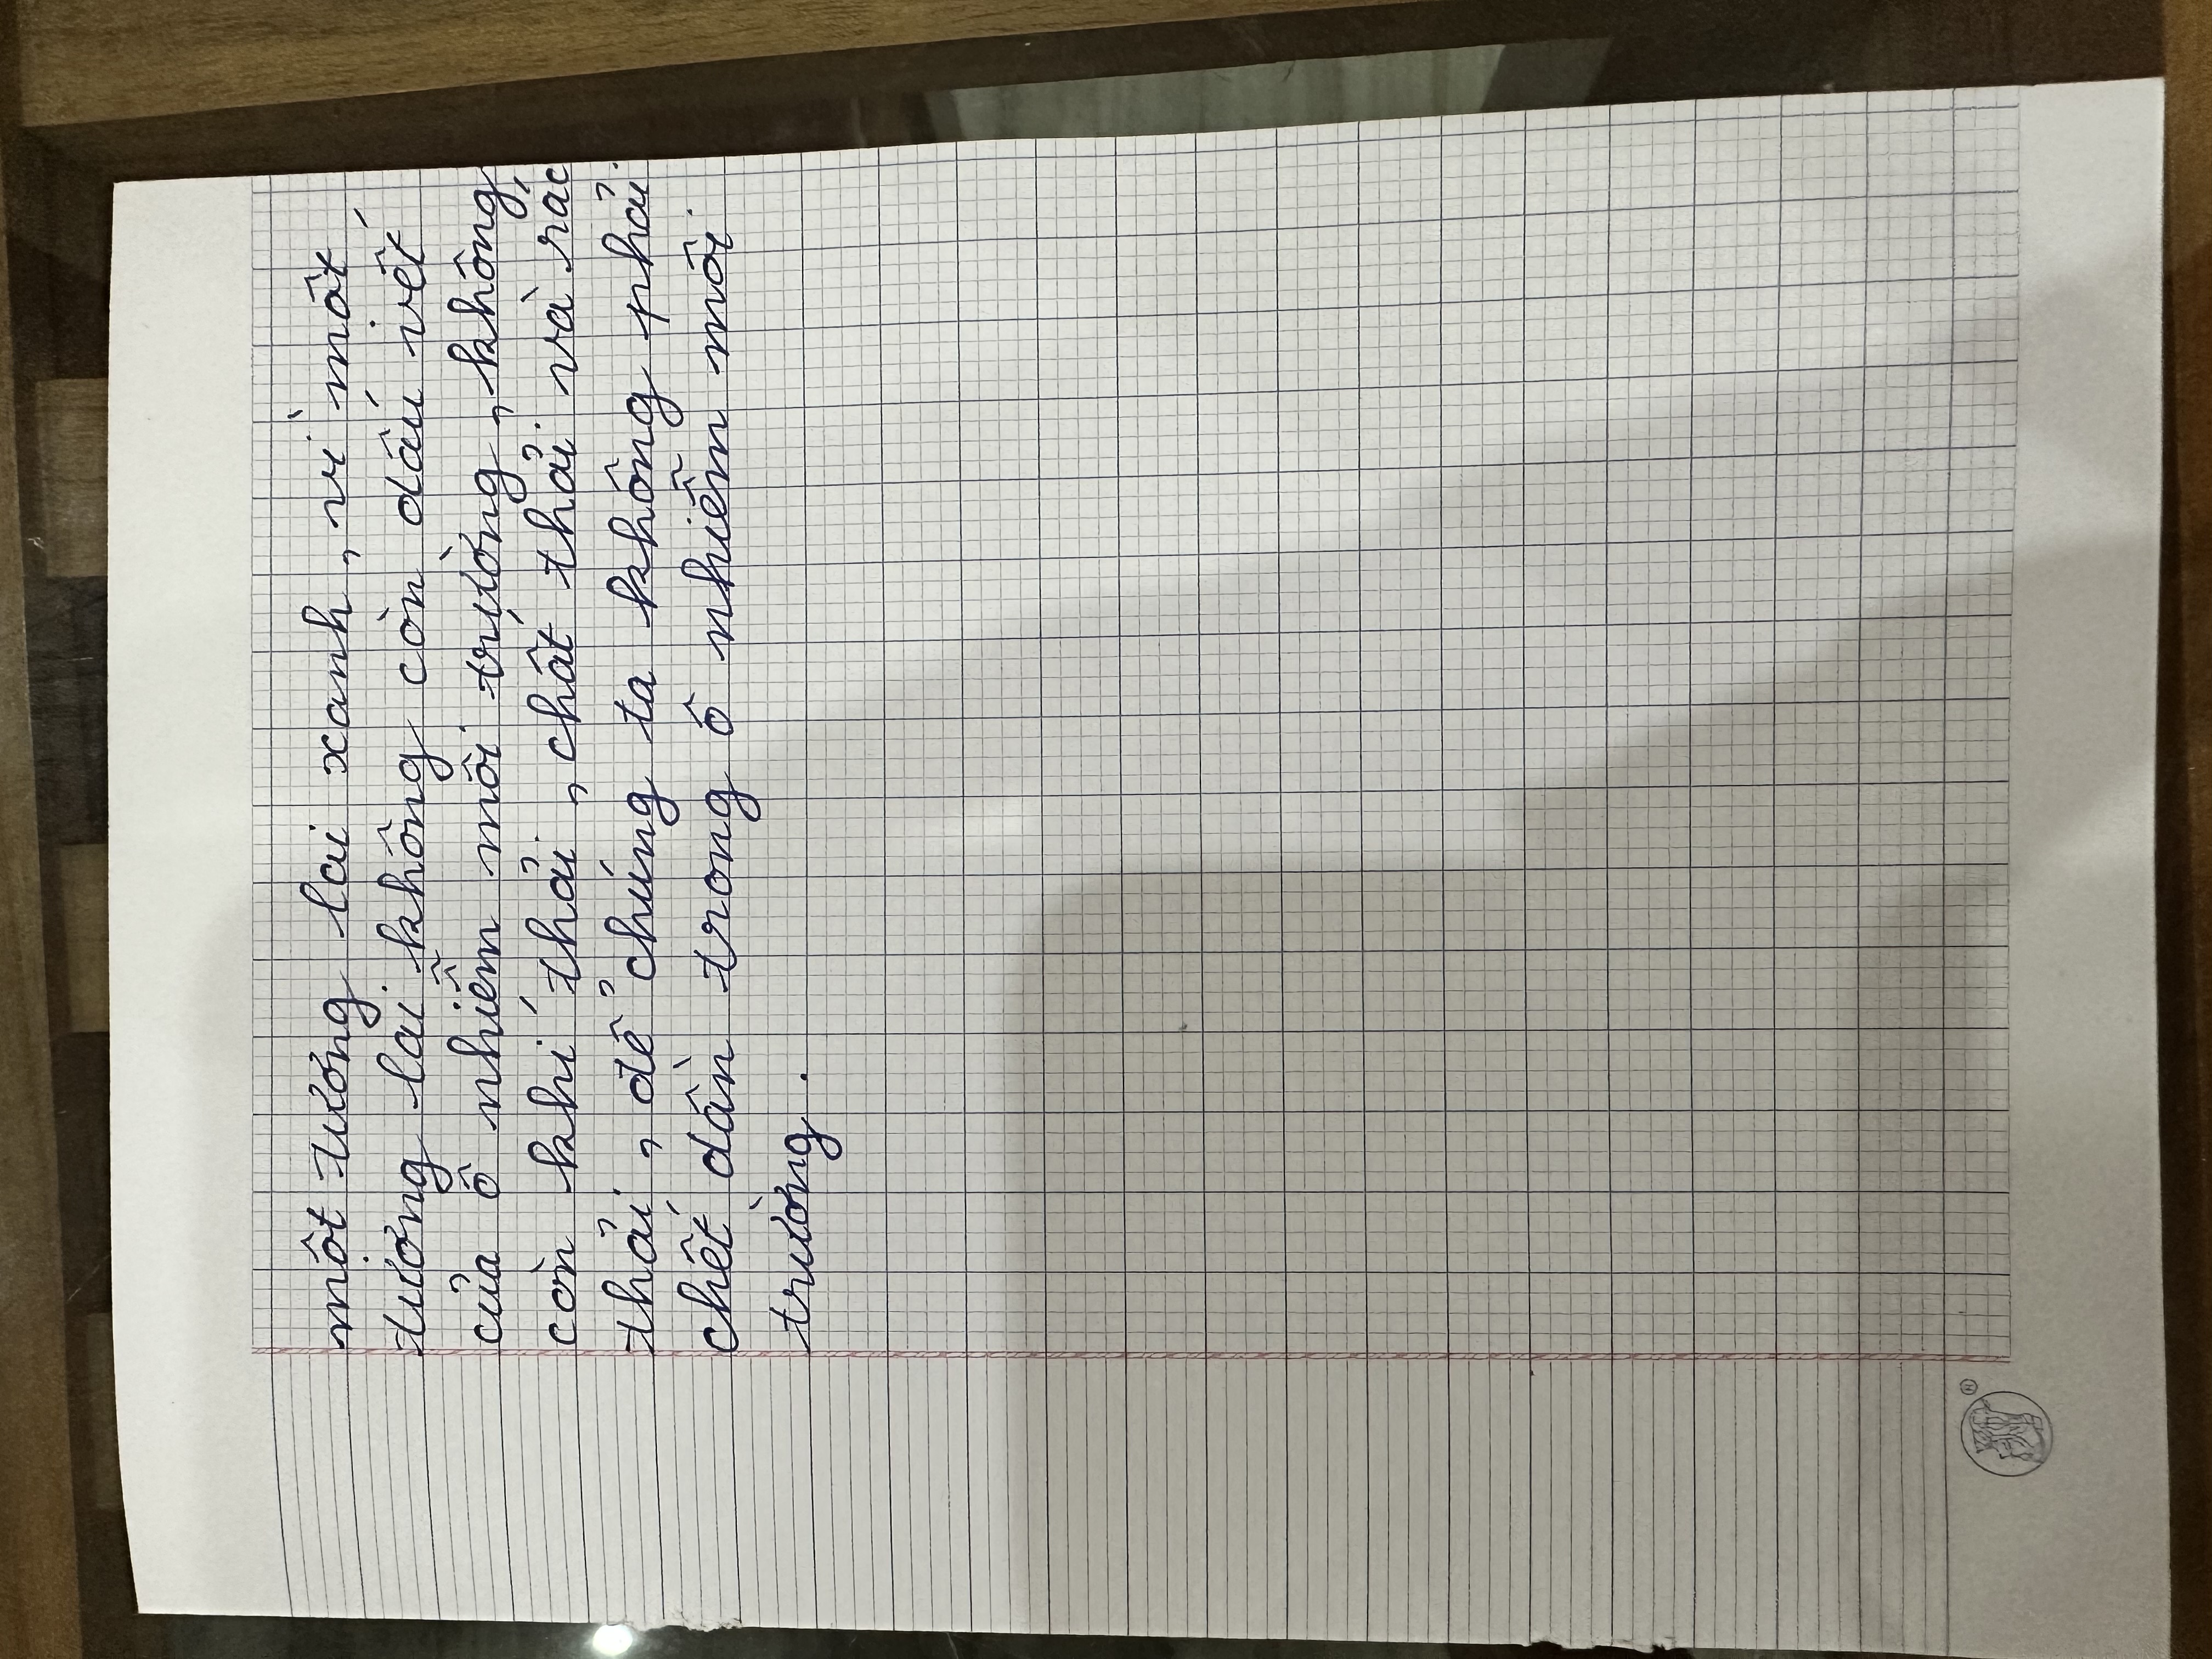 một tương lai xanh, vì một
tương lai không còn dấu vết
của ô nhiễm môi trường, không
còn khí thải, chất thải và rác
thải, để chúng ta không phải
chết dần trong ô nhiễm môi
trường.